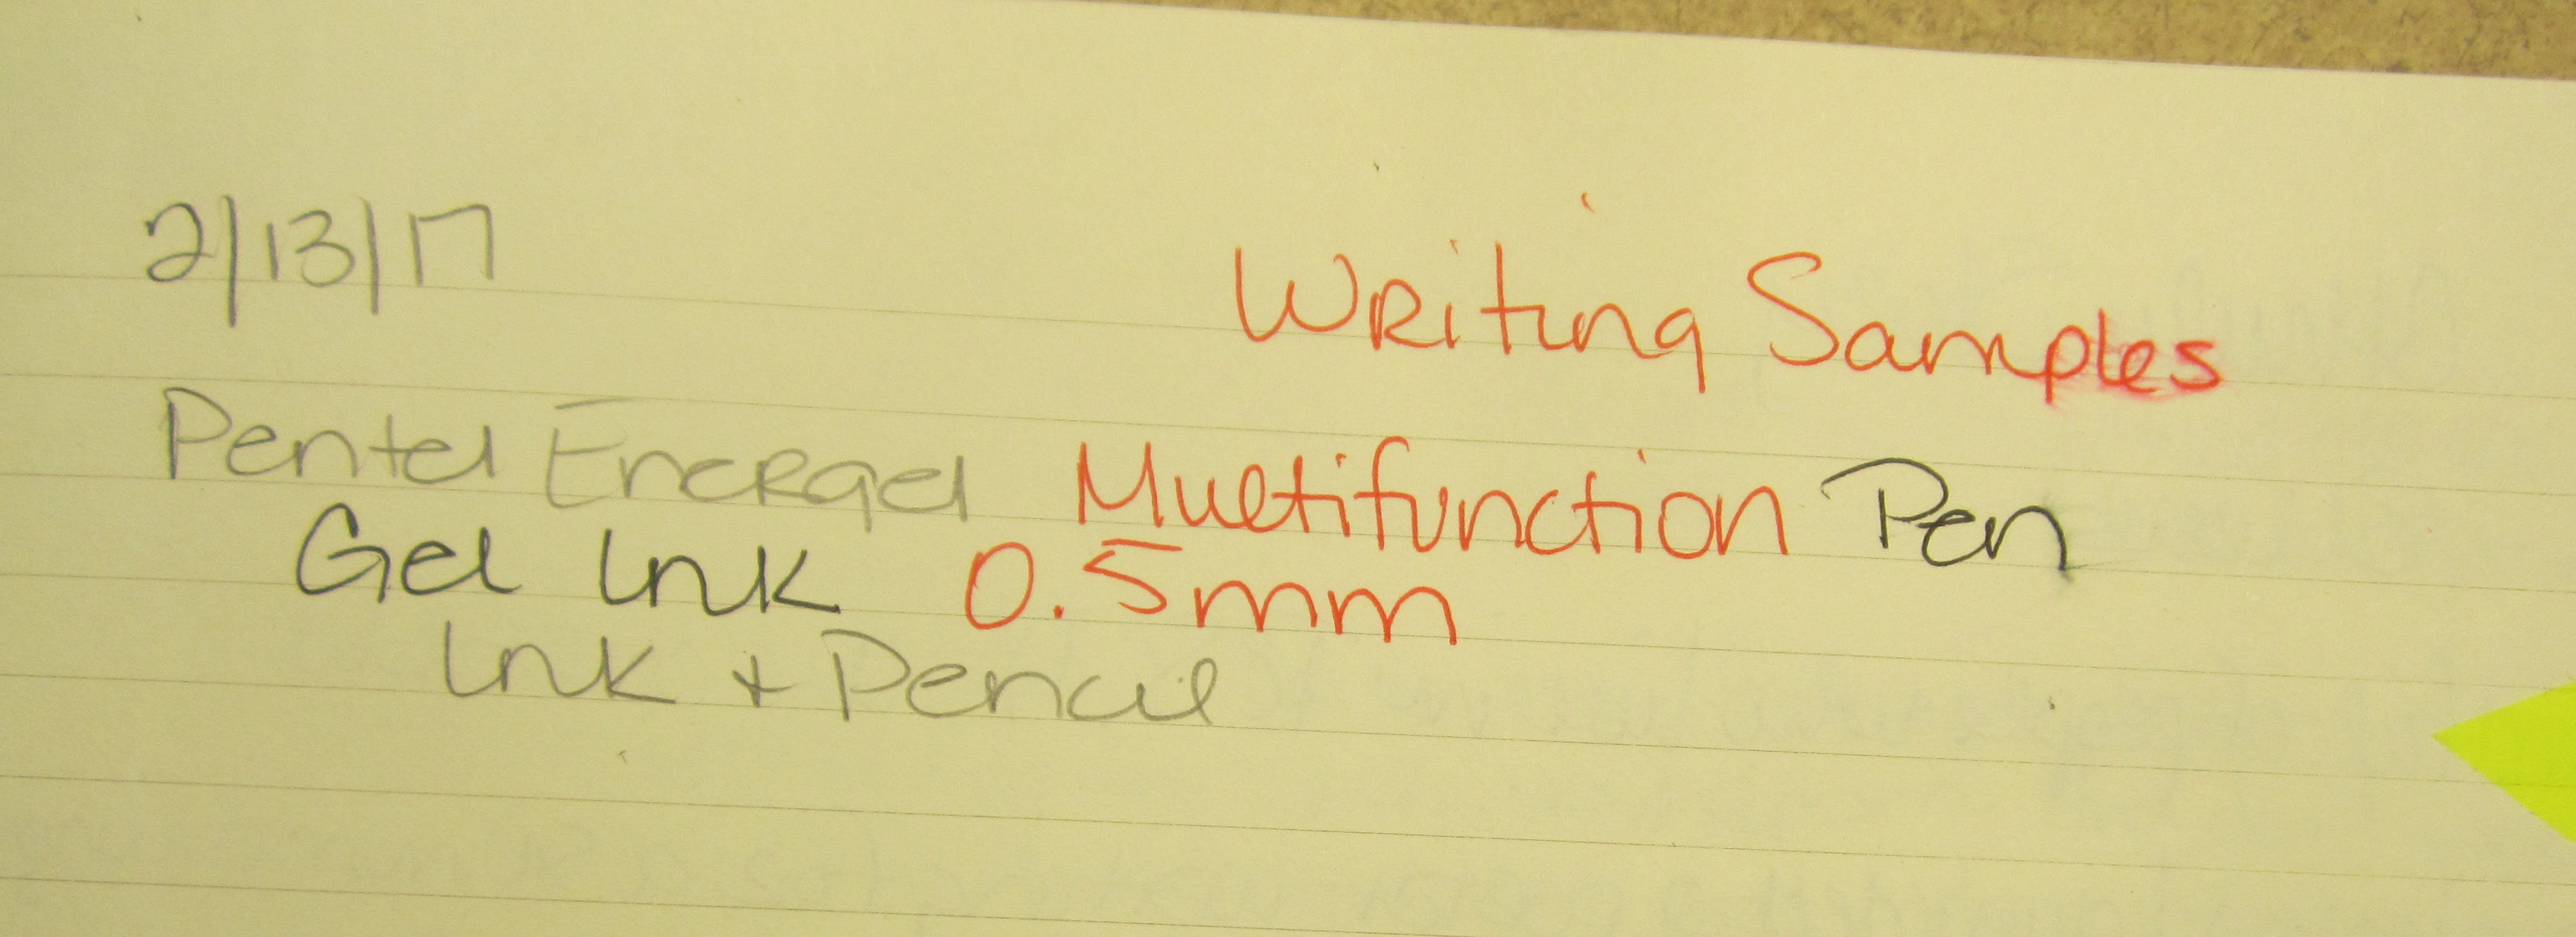 2/13/17
Writing Samples
Pentel Energel Multifunction Pen
Gel Ink 0.5mm
Ink + Pencil